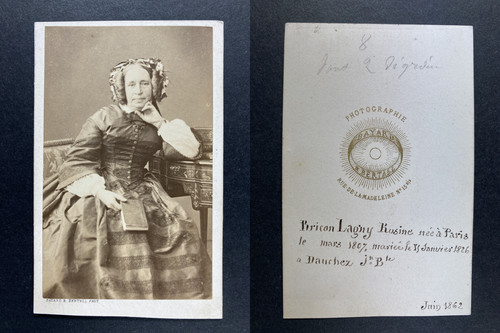 BAYARD & BERTALL PHOT
8
PHOTOGRAPHIE
BAYARD
& BERTALL
RUE DE LA MADELEINE
Bricon Lagny Rosine née à Paris
le mars 1807, mariée le 31 Janvier 1826
a Danchez Jn Bte
Juin 1862